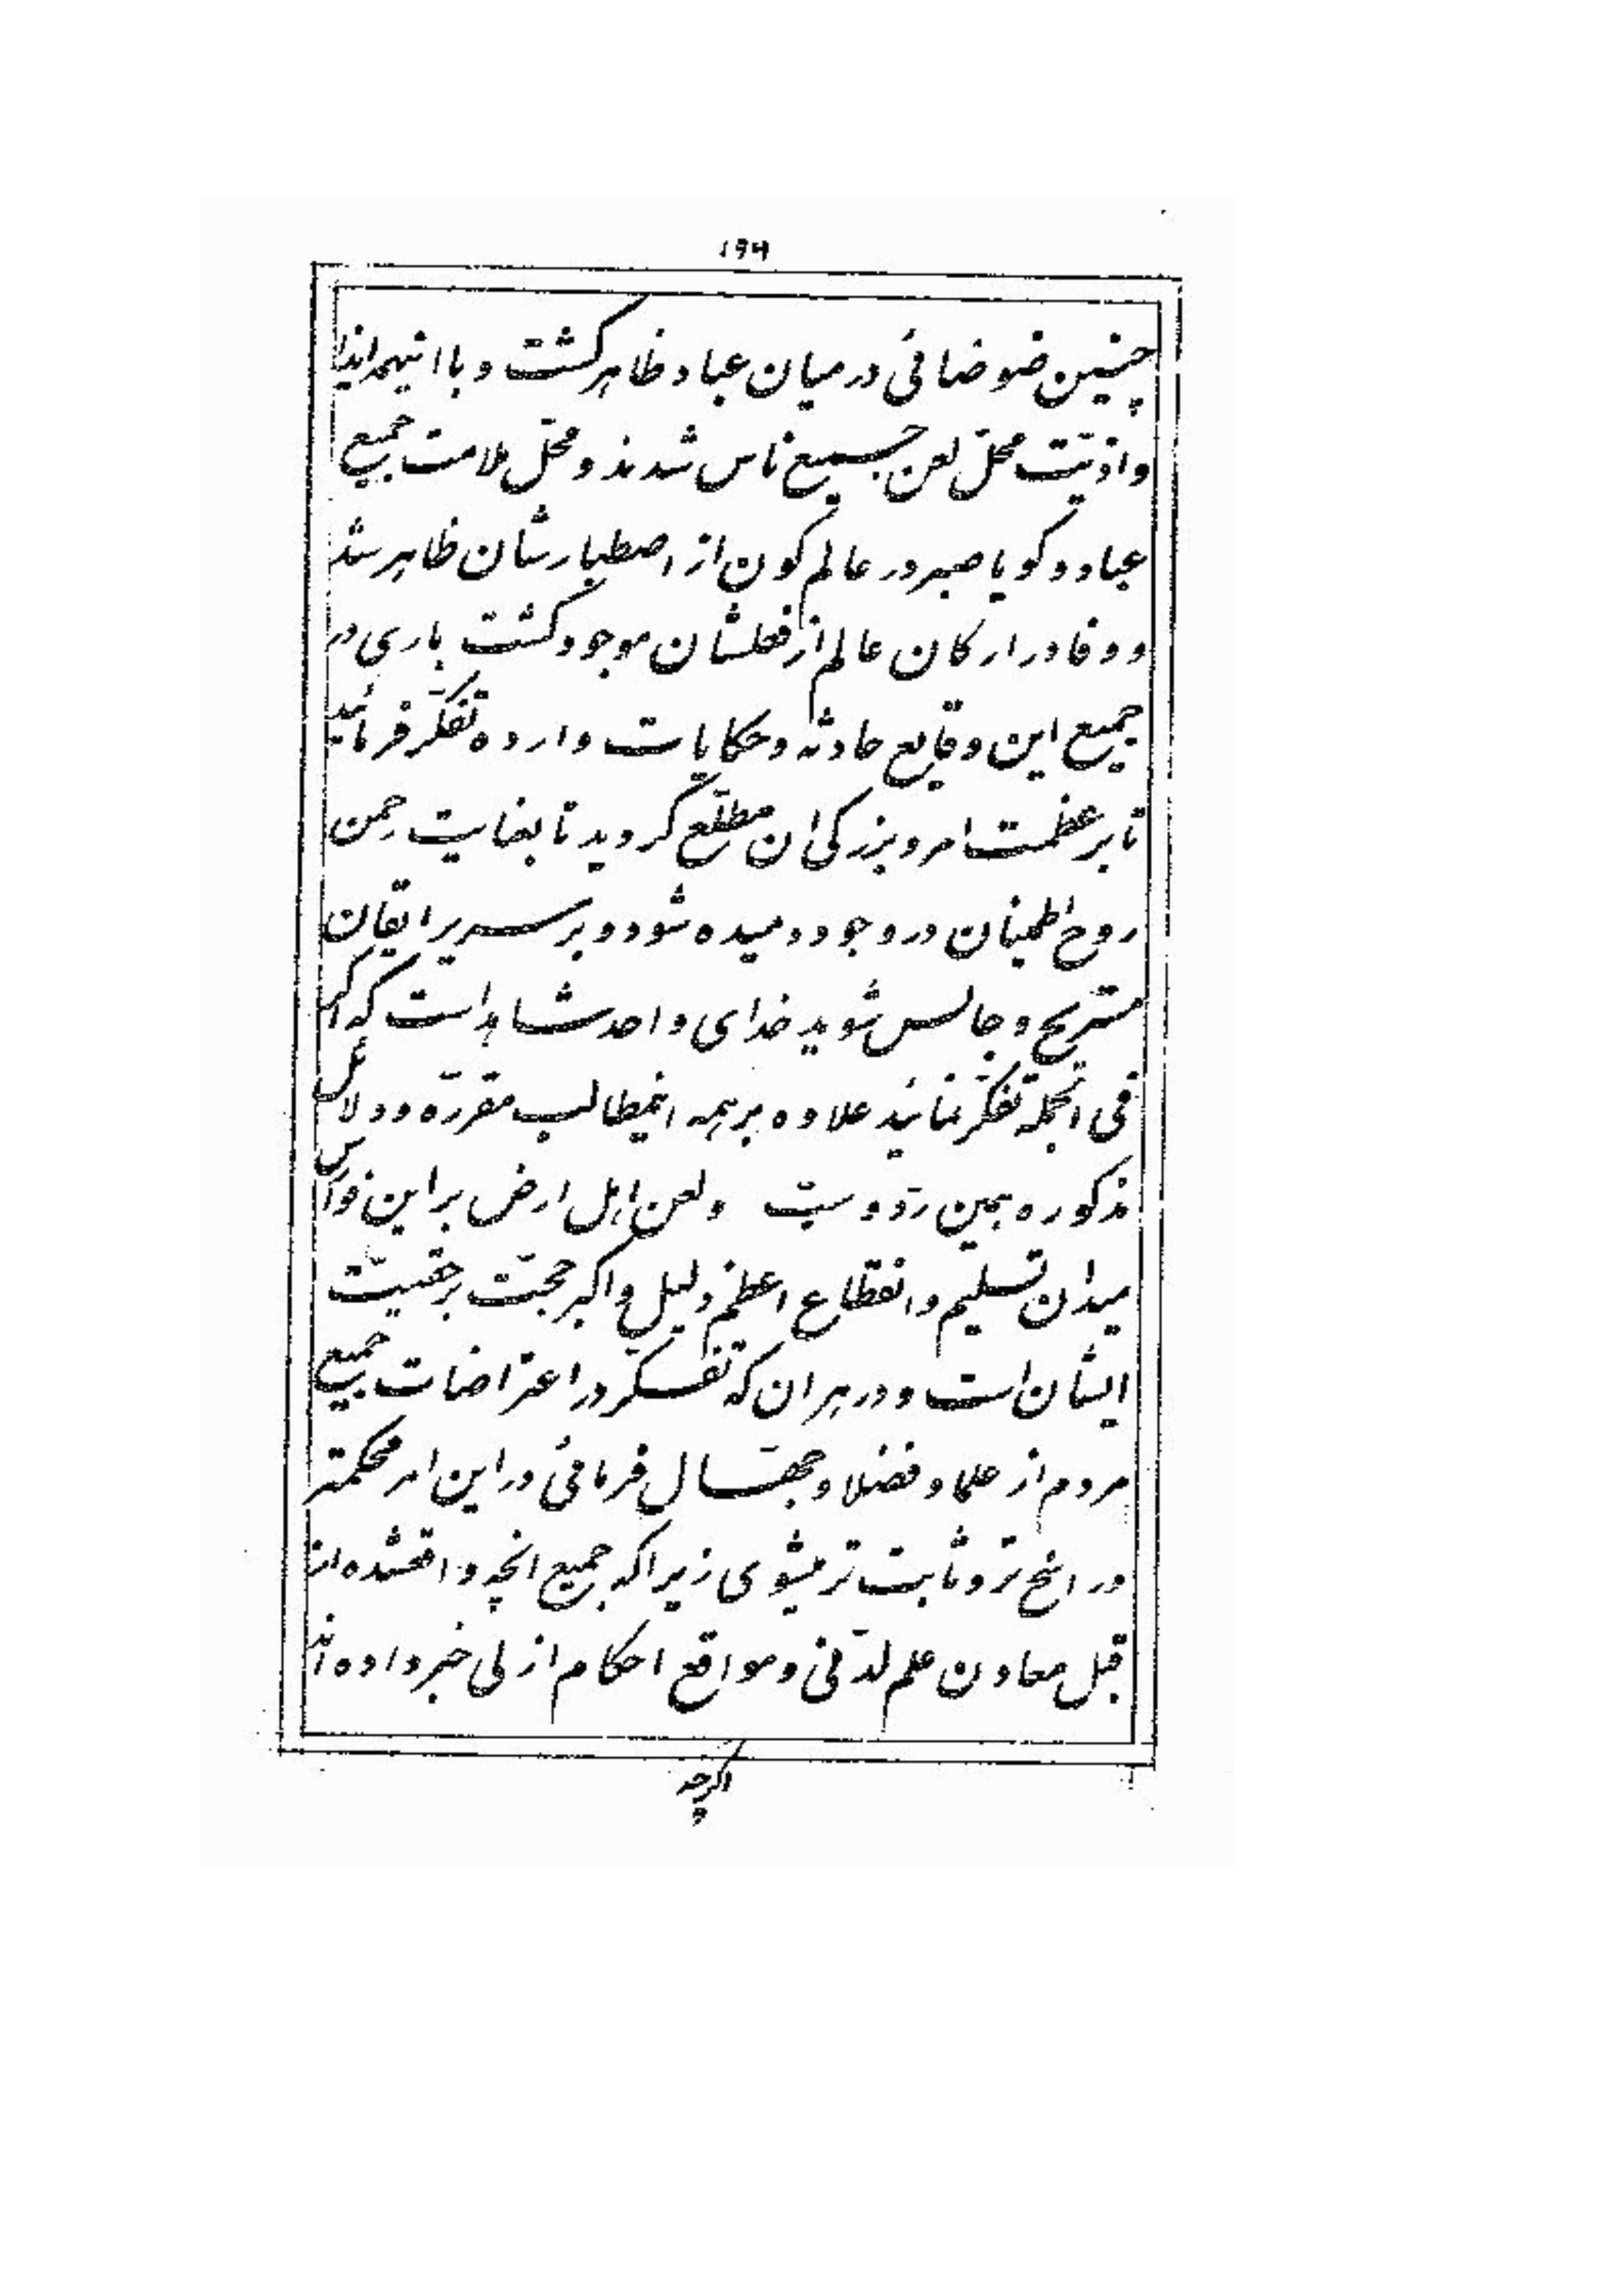 ۱۹۴
چنین ضوضائی در میان عباد ظاهر کشت و با اینهمه ایذا
و اذیّت محلّ لعن جمیع ناس شدند و محلّ ملامت جمیع
عباد و کویا صبر در عالم کون از اصطبارشان ظاهر شد
و وفا در ارکان عالم از فعلشان موجود کشت باری در
جمیع این وقایع حادثه و حکایات وارده تفکّر فرمائید
تا بر عظمت امر و بزرکی ان مطّلع کردید تا بعنایت رحمن
روح اطمینان در وجود دمیده شود و بر سریر ایقان
مستریح و جالس شوید خدای واحد شاهد است که اکر
فی الجمله تفکّر نمائید علاوه بر همه اینمطالب مقررّه و دلائل
مذکوره همین ردّ و سبّ و لعن اهل ارض بر این فوارس
میدان تسلیم و انقطاع اعظم دلیل و اکبر حجّت بر حقیّت
ایشان است و در هر ان که تفکّر در اعتراضات جمیع
مردم از علما و فضلا و جهّال فرمائی در این امر محکمتر
و راسخ تر و ثابت تر میشوی زیرا که جمیع انچه واقعشده از
قبل معادن علم لدنّی و مواقع احکام ازلی خبر داده اند
اکرچه